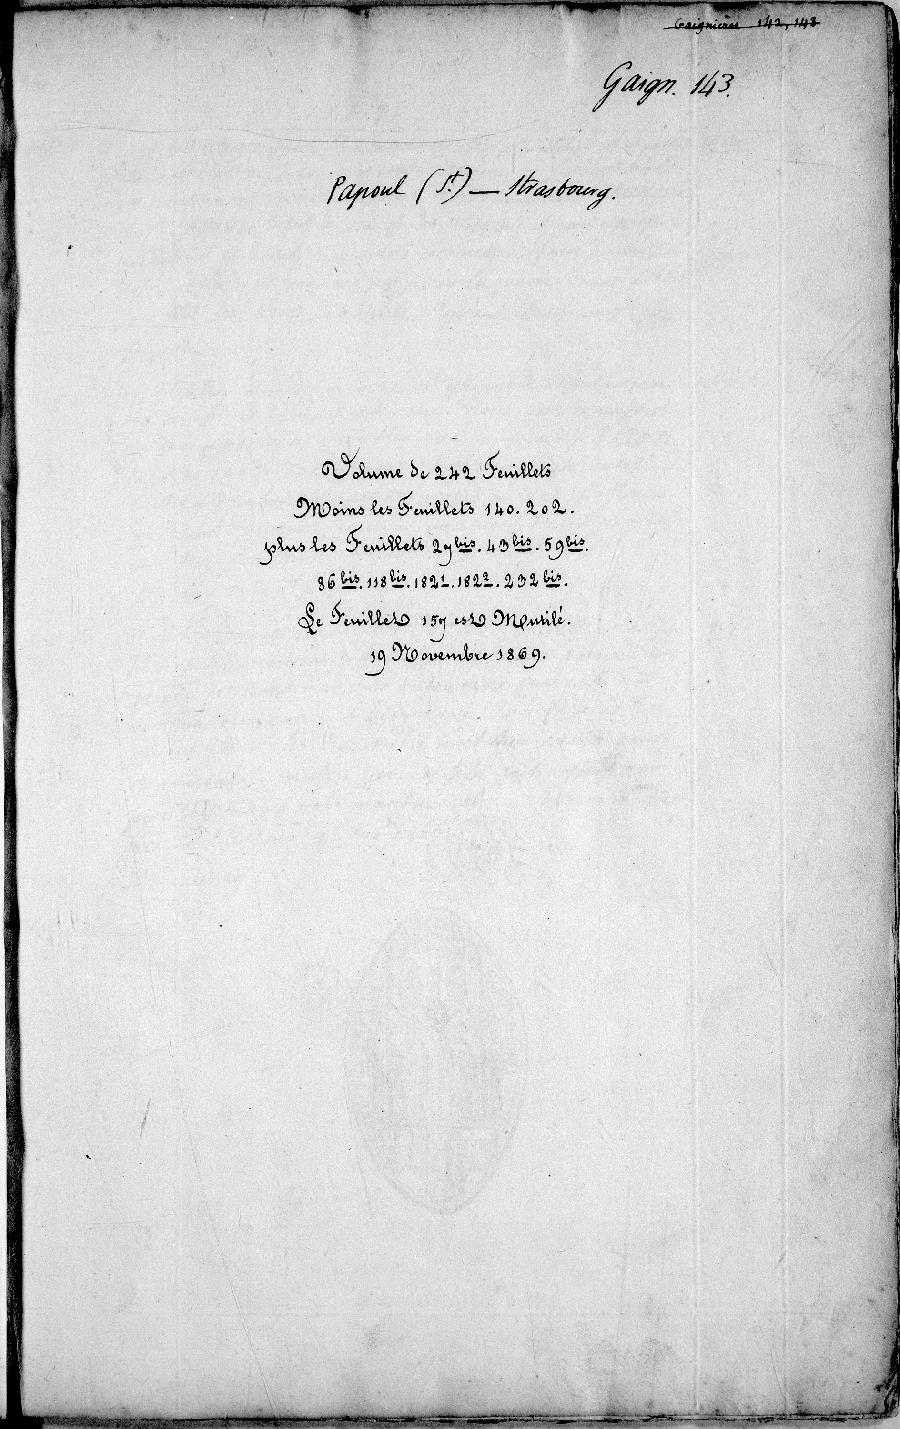 Gaignières 142, 143
Gaign. 143.
Papoul (St) — Strasbourg.
Volume de 242 Feuillets
Moins les Feuillets 140. 202.
plus les Feuillets 27 bis. 43 bis. 59 bis.
86 bis. 118 bis. 182 1. 182 2. 232 bis.
Le Feuillet 157 est Mutilé.
19 Novembre 1869.